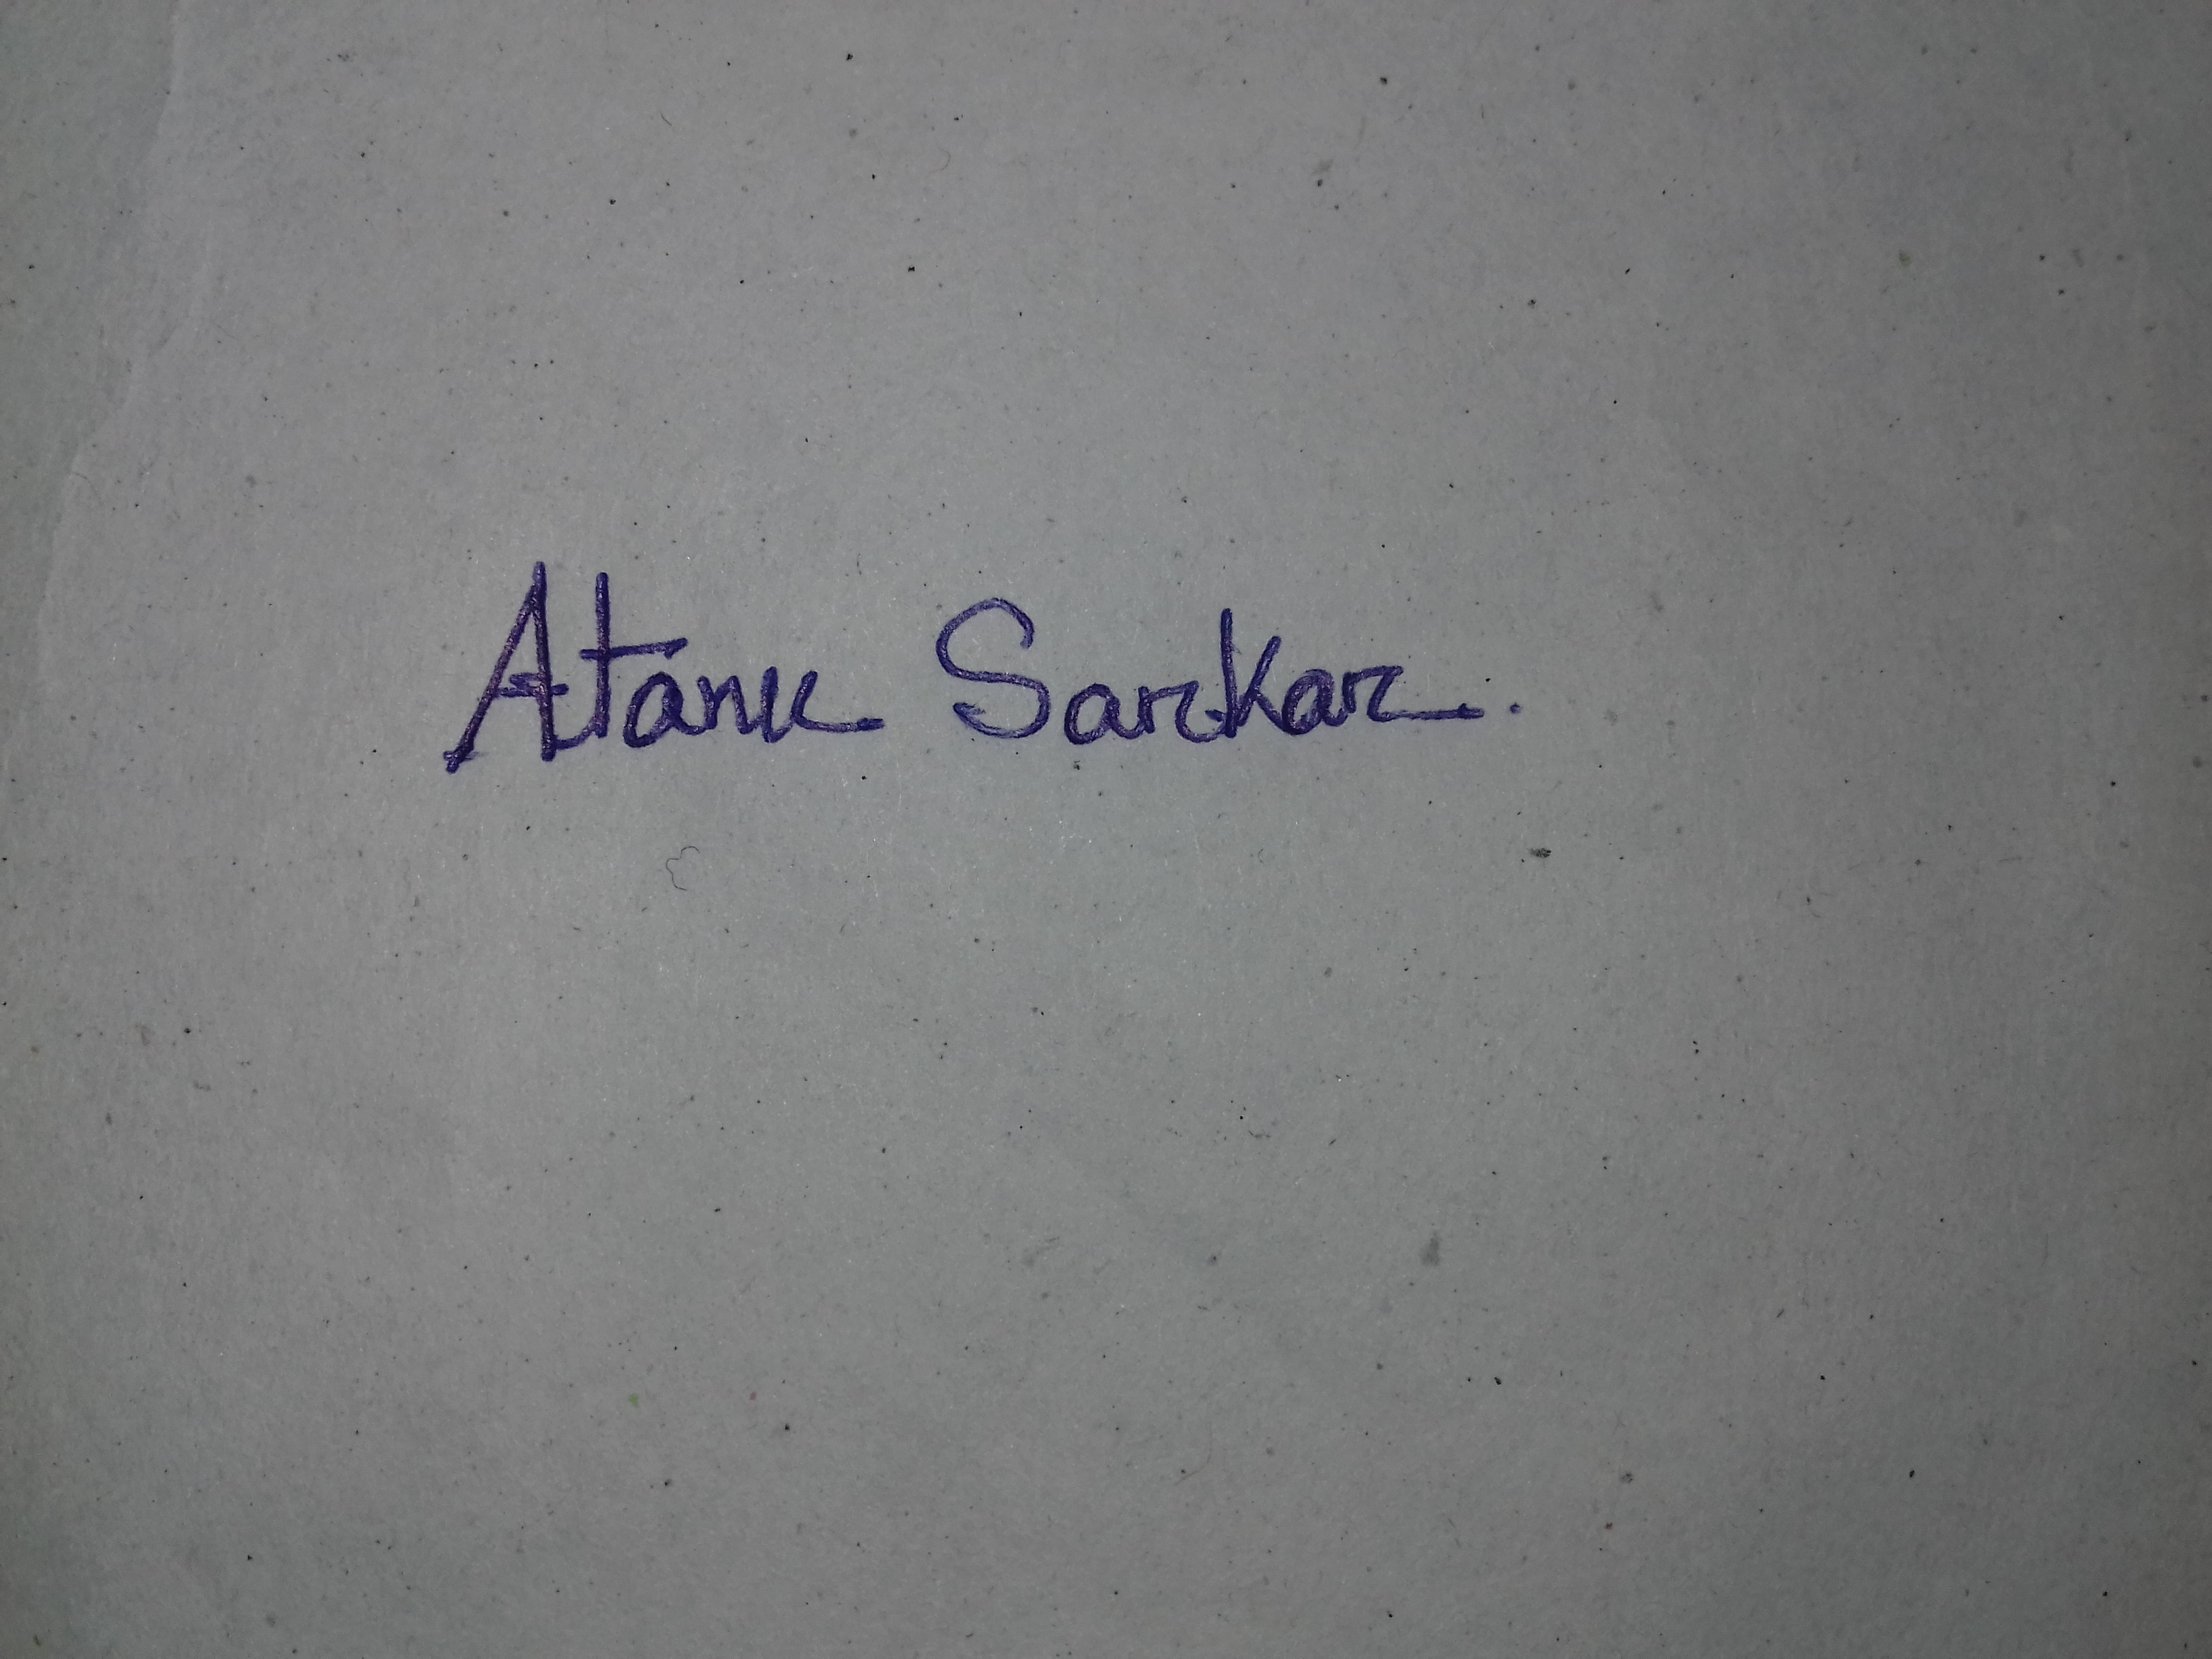 Atanu Sarkar.